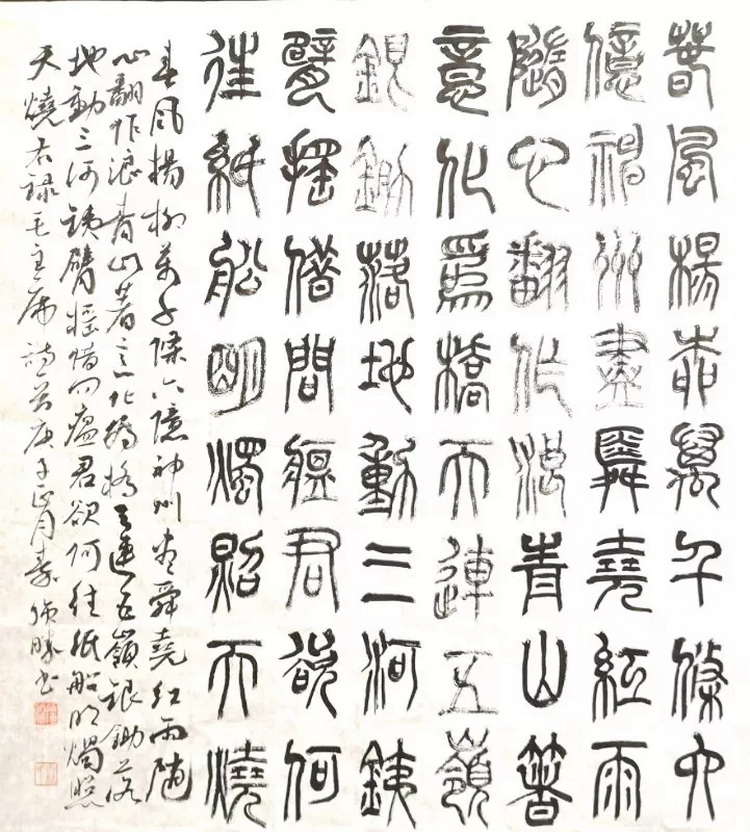 春風楊柳萬千條六
億神州盡舜堯紅雨
隨心翻作浪青山著
意化為橋天連五嶺
銀鋤落地動三河鐵
臂搖借問瘟君欲何
往紙船明燭照天燒
春風楊柳萬千條六億神州盡舜堯紅雨隨
心翻作浪青山著意化為橋天連五嶺銀鋤落
地動三河鐵臂搖借問瘟君欲何往紙船明燭照
天燒右錄毛主席詩首庚子正月勝書